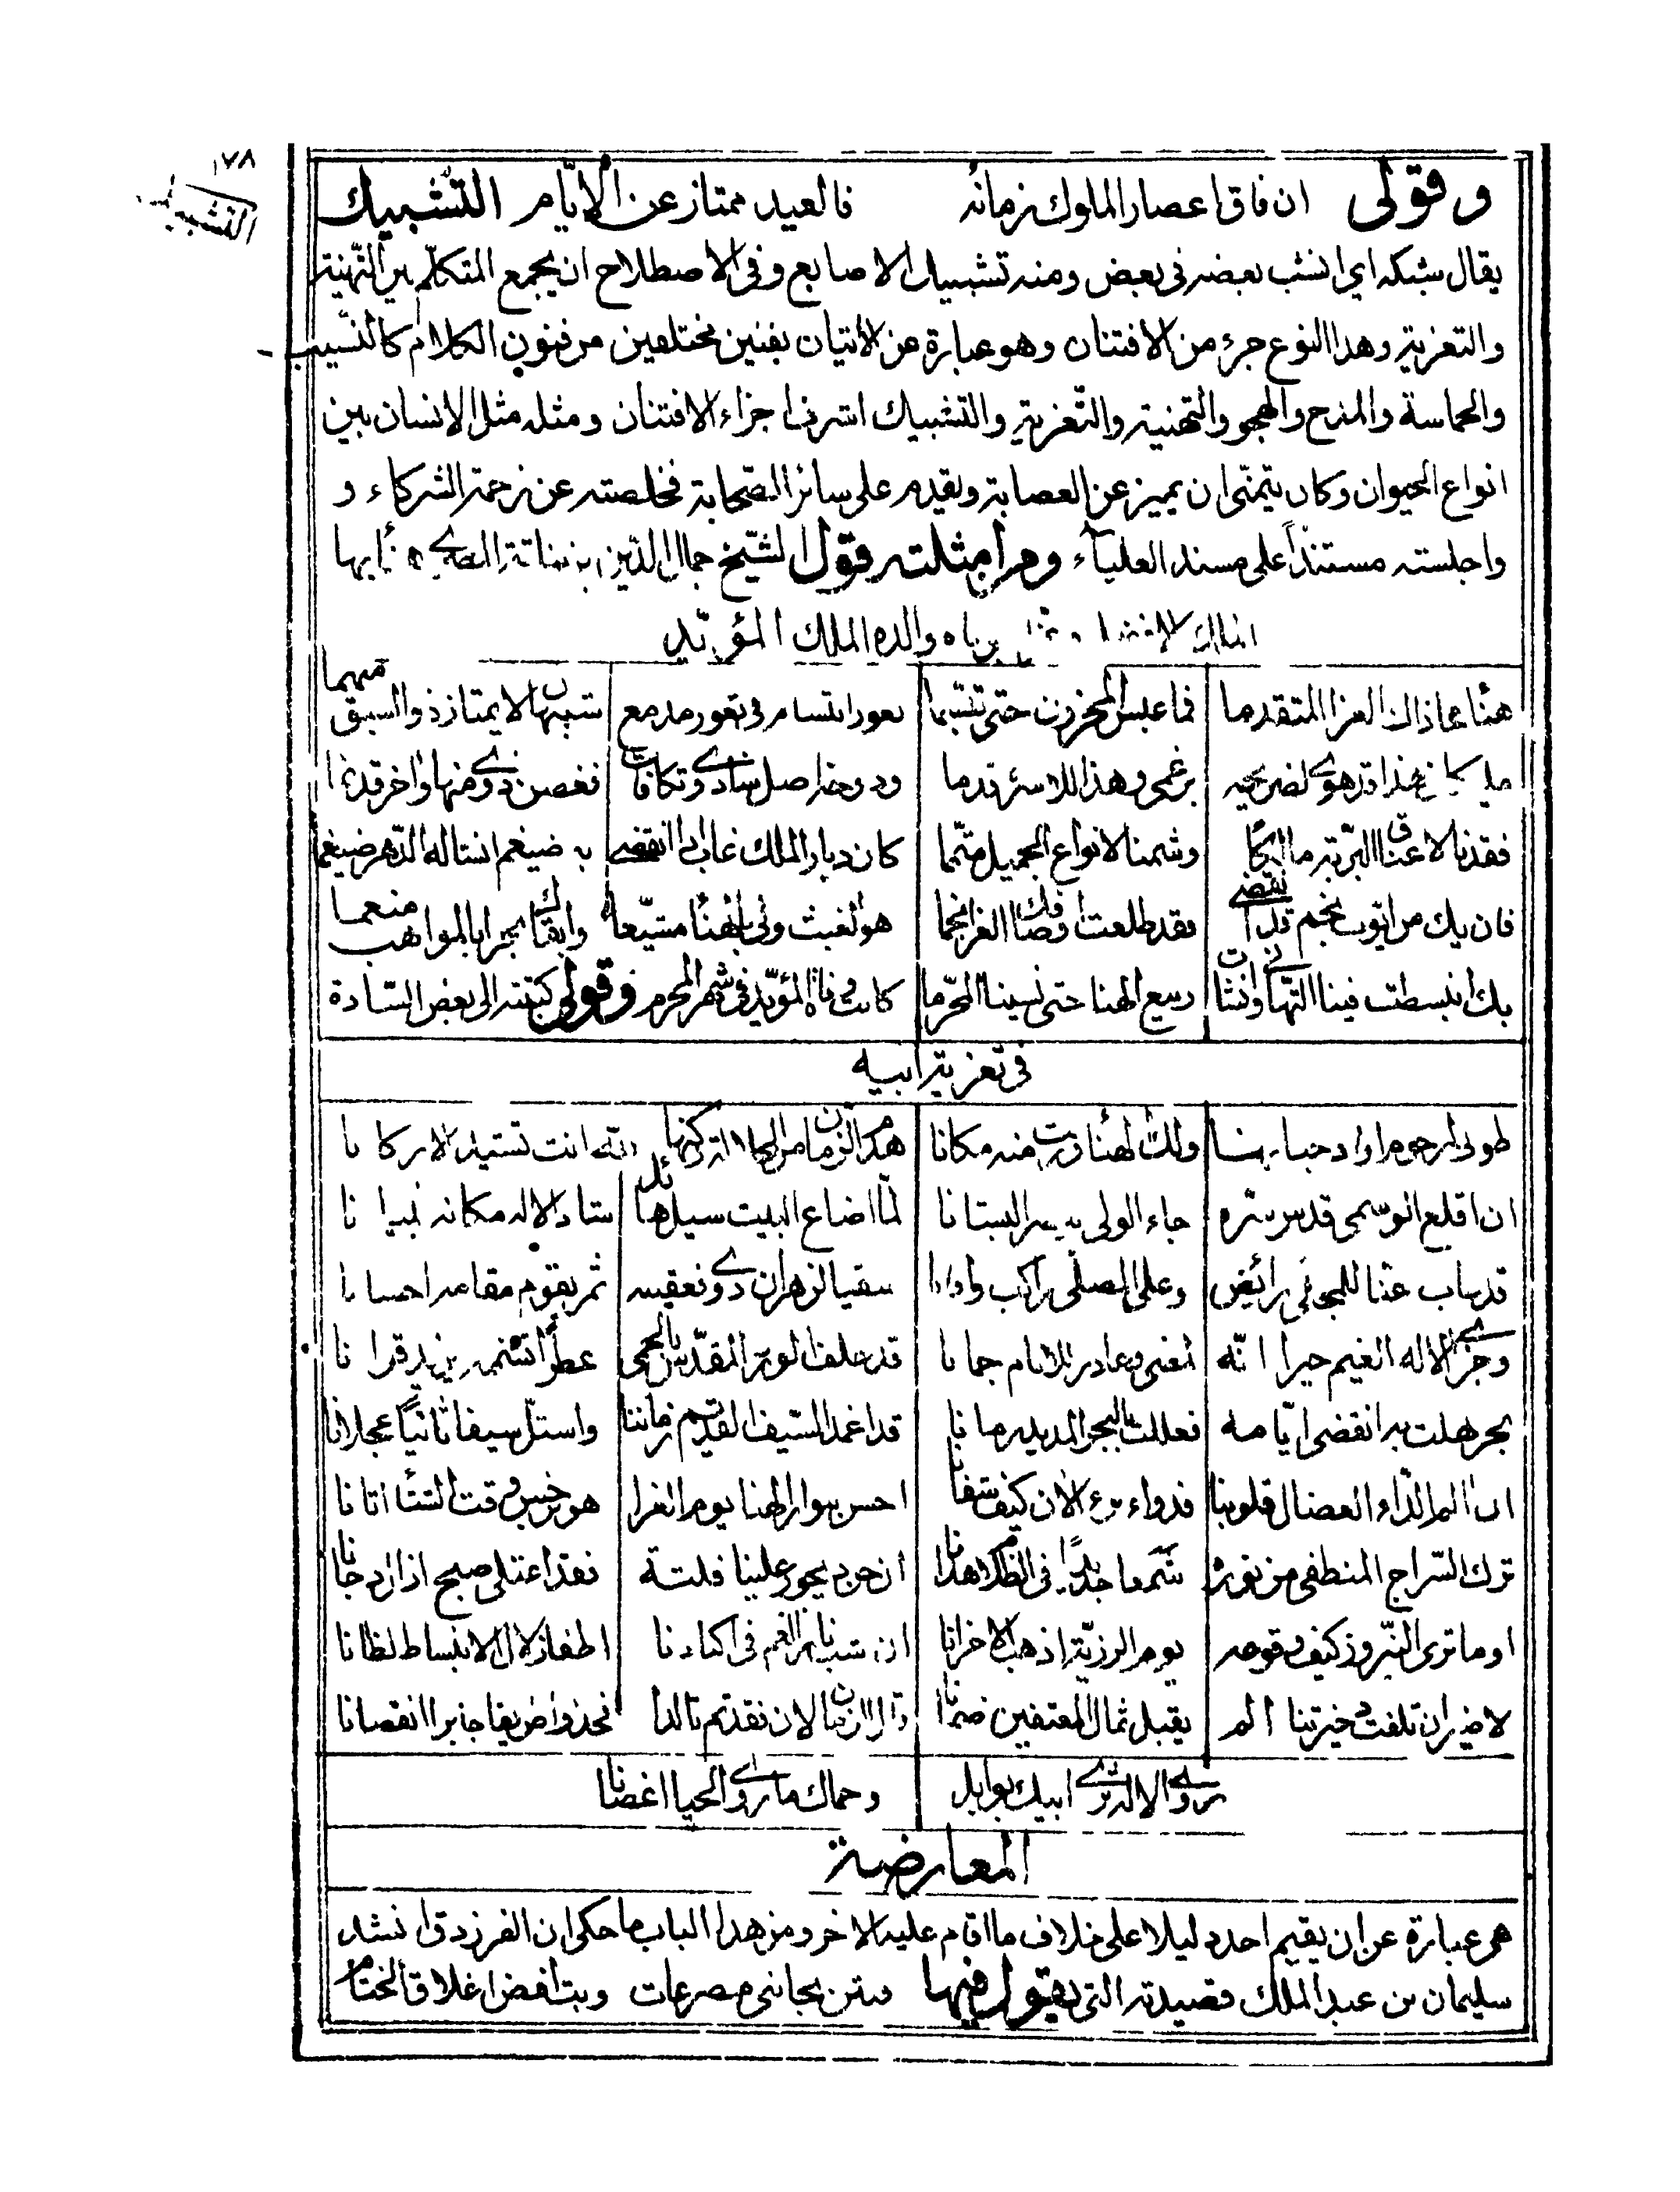 ١٧٨
التشبيك
وقولى ان فاق اعصار الملوك زمانه فالعيد ممتاز عن الايّام التشبيك
يقال شبكه اي انشب بعضه فى بعض ومنه تشبيك الاصابع وفى الاصطلاح ان يجمع المتكلّم بين التّهنية
والتعزية وهذا النوع جزء من الافتنان وهو عبارة عن الاتيان بفنين مختلفين من فنون الكلام كالنّسيب
والحماسة والمدح والهجو والتهنية والتّعزية والتشبيك اشرف اجزاء الافتنان ومثله مثل الانسان بين
انواع الحيوان وكان يتمنّى ان يميز عن العصابة ويقدم على سائر الصّحابة فخلصته عن زحمة الشركاء و
واجلسته مستنداً على مسند العلياء ومن امثلته قول الشيخ جمال الدّين بن نباتة المصرى
الملك الافضل والده الملك المؤيّد
هنأ محا ذاك العزا المتقدما فما عبس المحزون حتى تبسّما ثغور ابتسام فى ثغور مدمع شبيهان لا يمتاز ذو السبق منهما
برغمى وهذا للاسرّة قد سما ودوحة اصل شادى وتكافأت فغصن ذوى منها واخر قد نما
فقدنا لاعناق البريّة مالكًا وشمنا لانواع الجميل متمّما كان ديار الملك غاب اذا انقضى به ضيغم انشا له الدّهر ضيغما
فان يك من ايّوب نجم قد انقضى فقد طلعت اوصافك الغرّ انجما هو الغيث ولى بالهنأ مشيّعا وابقاك بحرا بالمواهب منعما
بك انبسطت فينا التّهانى وانشأت ربيع الهنا حتى نسينا المحرّما كانت وفاة المؤيّد فى شهر المحرم وقولى كتبته الى بعض السّادة
فى تعزية ابيه
ولك الهنأ ورثت منه مكانا هدم الزمان من الجلالة ركنها انت تستيد الاركانا
ان اقلع الوسمى قدس سرّه جاء الولى يسر البستانا لمّا اضاع البيت سيل هائل شاد الاله مكانه بنيانا
قد غاب عنّا وعلى المصلّى راكب سقيا لزهران ذوى وتعقبه ثمر يقوم مقامه احسانا
وجزى الاله الغيم خيرا انّه افنى وغادر للانام جمانا قد خلف الورد المقدّس بالحمى عطراً
بحر هلت به انقضى ايّامه فعللت بالبحر المديد زمانا قد اغمد السّيف القديم زماننا واستلّ سيفا ثانيًا عجلانا
ان الم الدّاء العضال قلوبنا فدواء برء الآن كيف شفانا احسن بنوار الهنا يوم العزا هو نرجس وقت الشتأ اتانا
ترك السّراج المنطفى من نوره شمعا جديداً فى الظلام هدانا ان جود يحور علينا فلتة فقد اعتلى صبح اذا ازدجانا
اوما ترى النّيروز كيف وقوعه يوم الرزيّة اذهب الاحزانا ان شب نار الغم فى اكبادنا اطفا زلال الانبساط لظانا
لا ضير ان تلفت ذخيرتنا الم يقبل ثمال المعتفين ضمانا قال الزمان الان نقدتم تالدا فخذوا طريفا جابرا نقصانا
روّى الاله ثرى ابيك بوابل وحماك ما روّى الحيا اغصانا
المعارضة
هى عبارة عن ان يقيم احد دليلا على خلاف ما اقام عليه الاخر ومن هذا الباب ما حكى ان الفرزدق انشد
سليمان بن عبد الملك قصيدته التى يقول فيها فبتن بجانبى مصرعات وبت افض اغلاق الختام